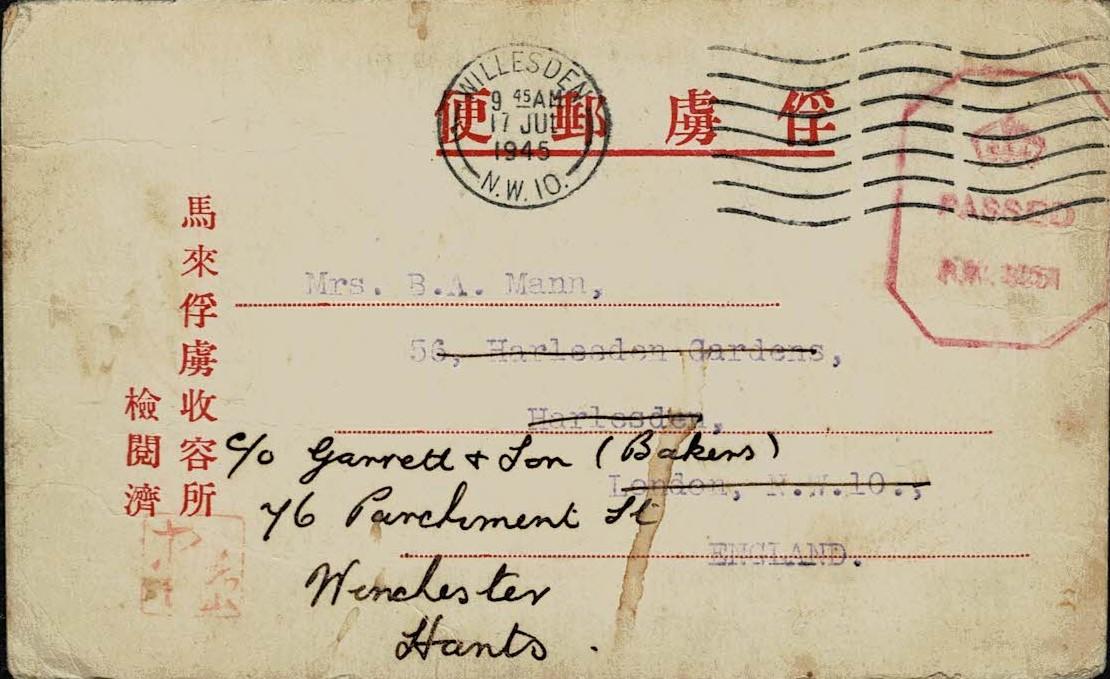 WILLESDEN
9 45 AM
17 JUL
1945
N.W.10.
俘虜郵便
PASSED
馬來俘虜收容所
檢閱濟
Mrs. B.A. Mann,
56, Harlesden Gardens,
Harlesden,
London, N.W.10.,
ENGLAND.
c/o Garrett & Son (Bakers)
76 Parchment St
Winchester
Hants.